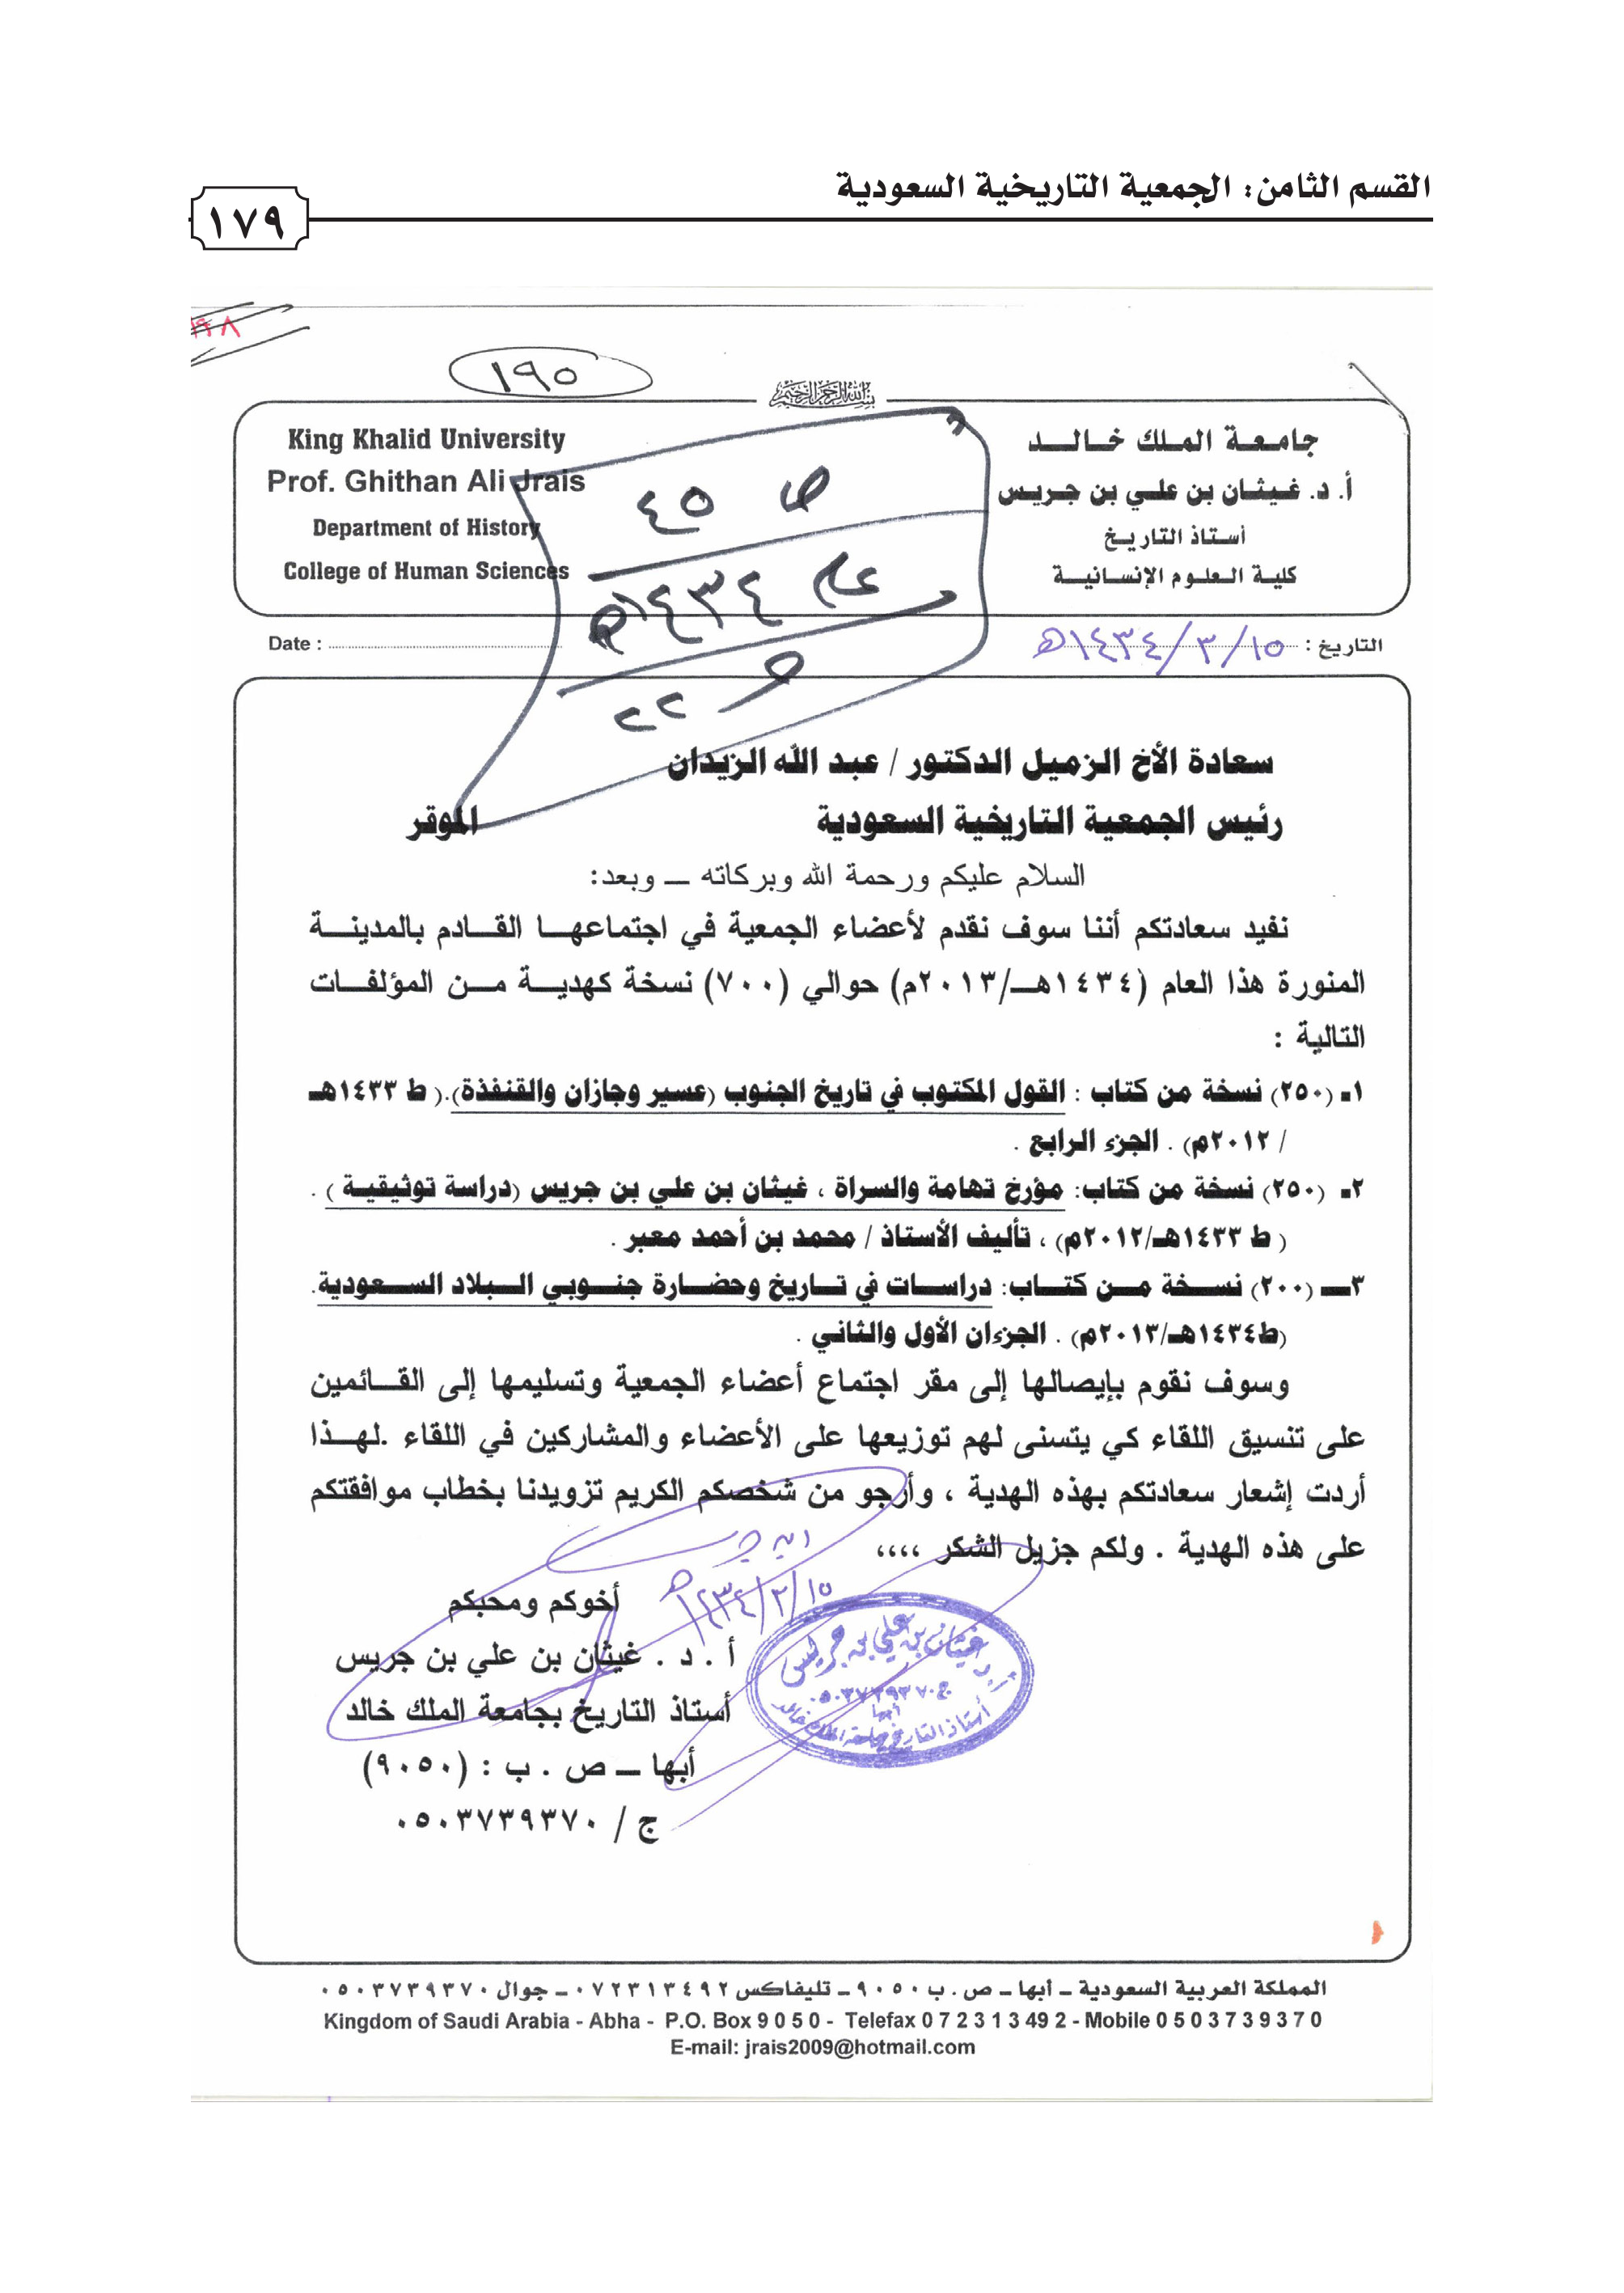 القسم الثامن: الجمعية التاريخية السعودية
١٧٩
١٩٥
بسم الله الرحمن الرحيم
جامعة الملك خالد
أ. د. غيثان بن علي بن جريس
أستاذ التاريخ
كلية العلوم الإنسانية
King Khalid University
Prof. Ghithan Ali Jrais
Department of History
College of Human Sciences
ص ٤٥
عام ١٤٣٤هـ
٢٢
التاريخ : ١٥/٣/١٤٣٤هـ
Date :
سعادة الأخ الزميل الدكتور / عبد الله الزيدان
رئيس الجمعية التاريخية السعودية الموقر
السلام عليكم ورحمة الله وبركاته ــ وبعد:
نفيد سعادتكم أننا سوف نقدم لأعضاء الجمعية في اجتماعها القادم بالمدينة
المنورة هذا العام (١٤٣٤هـ/٢٠١٣م) حوالي (٧٠٠) نسخة كهدية من المؤلفات
التالية :
١ـ (٢٥٠) نسخة من كتاب : القول المكتوب في تاريخ الجنوب (عسير وجازان والقنفذة).( ط ١٤٣٣هـ
/ ٢٠١٢م) . الجزء الرابع .
٢ـ (٢٥٠) نسخة من كتاب: مؤرخ تهامة والسراة ، غيثان بن علي بن جريس (دراسة توثيقية ) .
( ط ١٤٣٣هـ/٢٠١٢م) ، تأليف الأستاذ / محمد بن أحمد معبر .
٣ــ (٢٠٠) نسخة من كتاب: دراسات في تاريخ وحضارة جنوبي البلاد السعودية.
(ط١٤٣٤هـ/٢٠١٣م) . الجزءان الأول والثاني .
وسوف نقوم بإيصالها إلى مقر اجتماع أعضاء الجمعية وتسليمها إلى القائمين
على تنسيق اللقاء كي يتسنى لهم توزيعها على الأعضاء والمشاركين في اللقاء .لهذا
أردت إشعار سعادتكم بهذه الهدية ، وأرجو من شخصكم الكريم تزويدنا بخطاب موافقتكم
على هذه الهدية . ولكم جزيل الشكر ،،،،
١٥/٣/١٤٣٤هـ
أخوكم ومحبكم
أ . د . غيثان بن علي بن جريس
أستاذ التاريخ بجامعة الملك خالد
أبها ــ ص . ب : (٩٠٥٠)
ج / ٠٥٠٣٧٣٩٣٧٠
أ.د غيثان بن علي بن جريس
ج ٠٥٠٣٧٣٩٣٧٠
أبها
أستاذ التاريخ بجامعة الملك خالد
المملكة العربية السعودية ــ أبها ــ ص . ب ٩٠٥٠ ــ تليفاكس ٠٧٢٣١٣٤٩٢ ــ جوال ٠٥٠٣٧٣٩٣٧٠
Kingdom of Saudi Arabia - Abha - P.O. Box 9 0 5 0 - Telefax 0 7 2 3 1 3 49 2 - Mobile 0 5 0 3 7 3 9 3 7 0
E-mail: jrais2009@hotmail.com